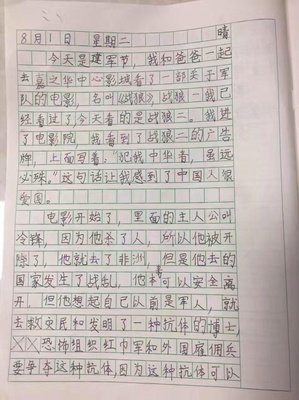 8月1日 星期二 晴
今天是建军节,我和爸爸一起
去嘉之华中心影城看了一部关于军
队的电影,名叫《战狼》,战狼一我已
经看过了今天看的是战狼二。我进
了电影院,我看到了战狼二的广告
牌,上面写着:"犯我中华者,虽远
必殊。"这句话让我感到了中国人很
爱国。
电影开始了,里面的主人公叫
冷锋,因为他杀了人,所以他被开
除了,他就去了非洲,但是他去的
国家发生了战乱,他本可以安全离
开,但他想起自己以前是军人,就
去救灾民和发明了一种抗体的博士,
恐怖组织红巾军和外国雇佣兵
要争夺这种抗体,因为这种抗体可以